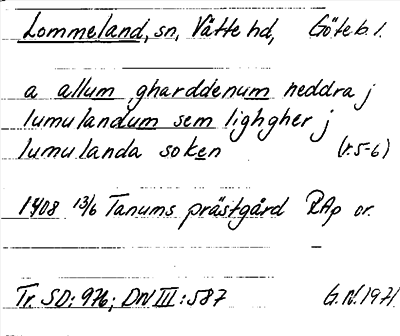 Lommeland, sn, Vätte hd, Göteb. l.
a allum gharddenum neddra j
lumulandum sem lighgher j
lumulanda soken (r. 5-6)
1408 13/6 Tanums prästgård RAp or.
Tr. SD: 976; DN III: 587 G.N. 1971